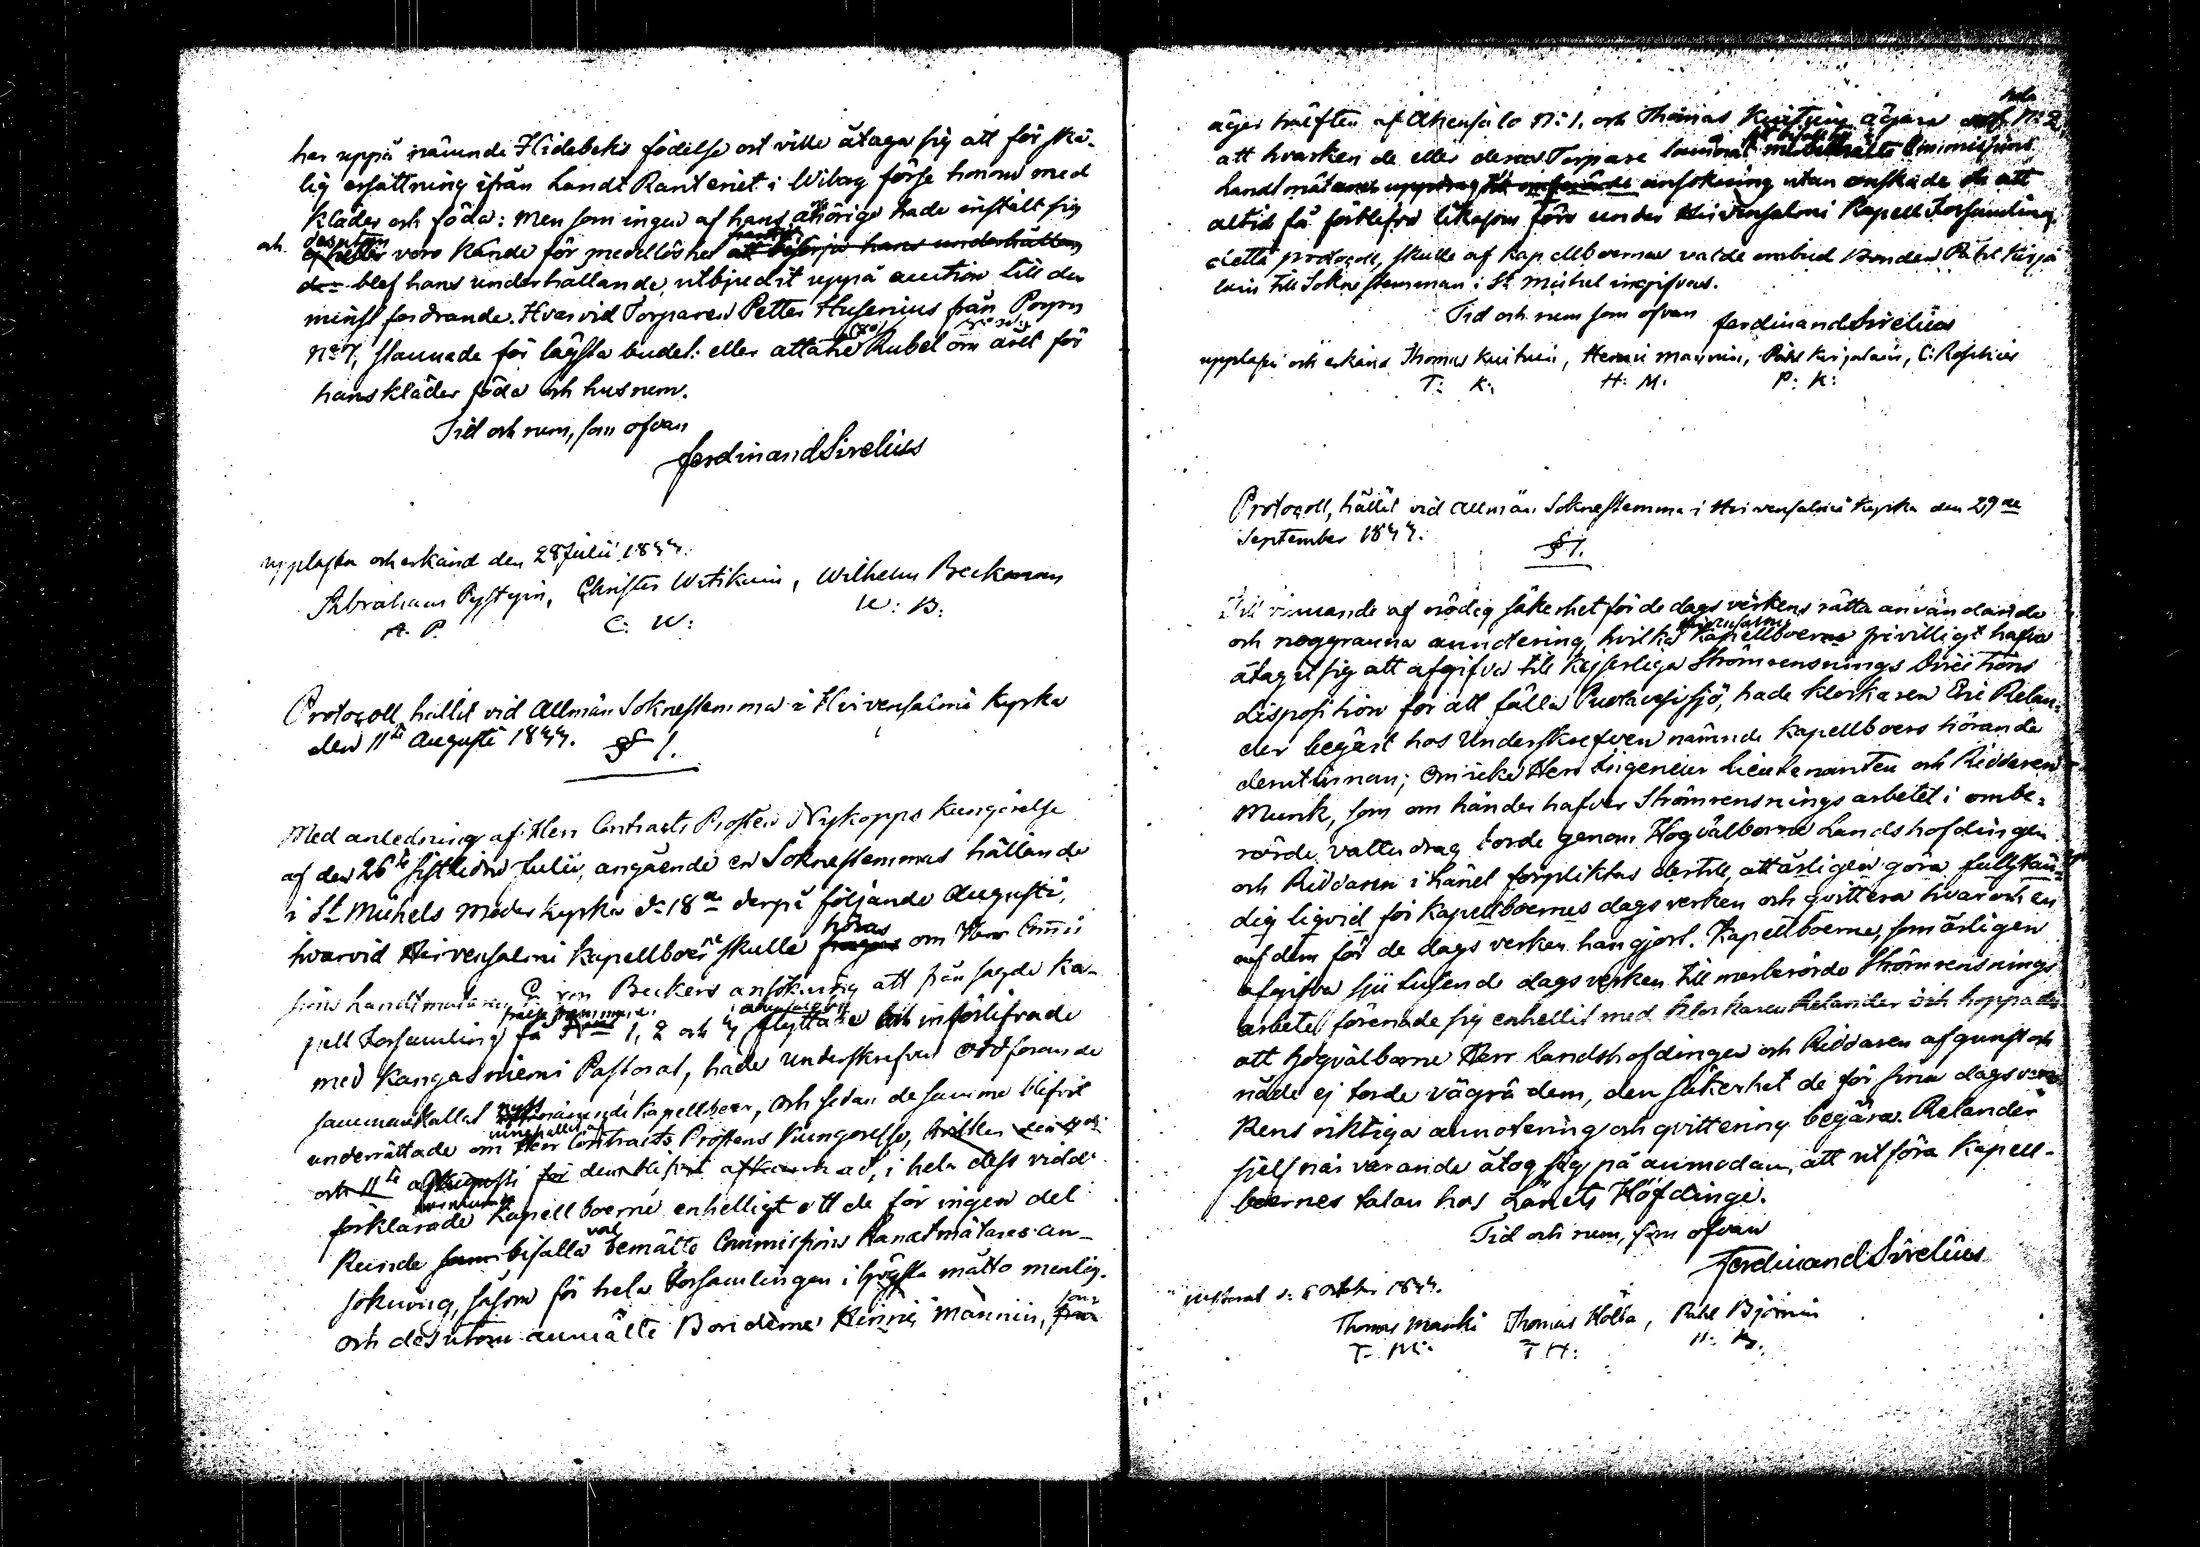 här uppå nämnde Hidebeks födelse ort ville åtaga sig att för skä-
lig ersättning ifrån Landt Ränteriet i Wiborg förse honom med
kläder och föda: men som ingen af hans anhörige hade instält sig
och dessutom ej heller voro kände för medellöshet att besörja hans underhållan
de blef hans underhållande utbjudit uppå auction till den
minst fordrande. Hvarvid Torparen Petter Husenius från Poyry
No 7, stannade för lägsta budet: eller attatio (80) Rubel om året för
hans kläder föda och husrum.
Tid och rum, som ofvan
Ferdinand Sirelius
upplästa och erkänd den 28 Julii 1844.
Abraham Pystyin, Christer Wätikain, Wilhelm Beckman
A. P. C: W: W: B:
Protocoll, hållit vid Allmän Soknestemma i Hirvensalmi kyrka
den 11te Augusti 1844. § 1.
Med anledning af Herr Contracts Prosten Nykopps kungörelse
af den 26te sistlidne Julii, angående en Sokneslemmas hållande
i St Michels Moder kyrka d: 18de derpå följande Augusti,
hvarvid Hirvensalmi kapellboerne skulle höras om Herr Commis
sions Landtmätaren C. von Beckers ansökning att från sagde Ka-
pell Församling få 1, 2 och 4 flyttade och införlifvade
med Kangasniemi Pastorat, hade Underskrefven ordförande
sammankallat nämnde Kapellboer, och sedan desamme blifvit
underrättade om innehållet af Herr Contracts Prostens Kungörelse,
och 11te Augusti för dem blifvit afkunnad, i hela dess vidd
förklarade Kapellboerne enhelligt att de för ingen del
kunde bifalla bemälte Commissions Landtmätares an-
sökning, såsom för hela Församlingen i högsta måtto menlig.
och dessutom anmälte Bönderne Henric Männin, som
äger hälften af Ahensalo N: 1. och Thomas Kuituin ägare af hela N: 2,
att hvarken de eller deras Torpare lämnat Commissions
Landtmätaren uppdrag till ansökning utan önskade att
altid få förblifva likasom förr under Hirvensalmi Kapell Församling.
detta protocoll, skulle af Kapellboernas valde ombud Bonden Påhl Kirja
lain till Sokne stemman i St Michel ingifvas.
Tid och rum som ofvan Ferdinand Sirelius
uppläst och erkänd Thomas Kuituin, Henric Mannin, Påhl Kirjalain, C: Roschier
T: K: H: M: P: K:
Protocoll, hållit vid Allmän Sokneslemma i Hirvensalmi kyrka den 29de
September 1844. § 1.
Till vinnande af nödig säkerhet för de dagsverkens rätta användande
och noggranna annotering, hvilka Hirvensalmi Kapellboerne frivilligt hafva
åtagit sig att afgifva till Kejserliga Strömrensnings Directions
disposition för att fälla Puulavesi sjö, hade klockaren Eric Relan-
der begärt hos Underskrefven nämnde Kapellboers hörande
derutinnan; om icke Herr Ingenieur Lieutenanten och Riddaren
Munk, som om händer hafver Strömrensnings arbetet i ombe-
rörde vattudrag torde genom Högvälborne Landshöfdingen
och Riddaren i länet förpliktas dertill, att årligen göra fullstän-
dig liqvid för Kapellboernes dagsverken och qvittera hvar och en
af dem för de dags verken han gjort. Kapellboerne, som årligen
afgifva sju tusende dagsverken till merberörde Strömrensnings
arbete, förenade sig enhelligt med Klockaren Relander och hoppades
att högvälborne Herr Landshöfdingen och Riddaren af gunst och
nåde ej torde vägra dem, den säkerhet de för sina dagsver-
kens riktiga annotering och qvittering begära. Relander
sjelf närvarande åtog sig på anmodan, att utföra Kapell-
boernes talan hos Länets Höfdinge.
Tid och rum, som ofvan
Ferdinand Sirelius
justerat d: 6 Octobr 1844.
Thomas Manki Thomas Hölba, Påhl Björnin
T: M: T H: